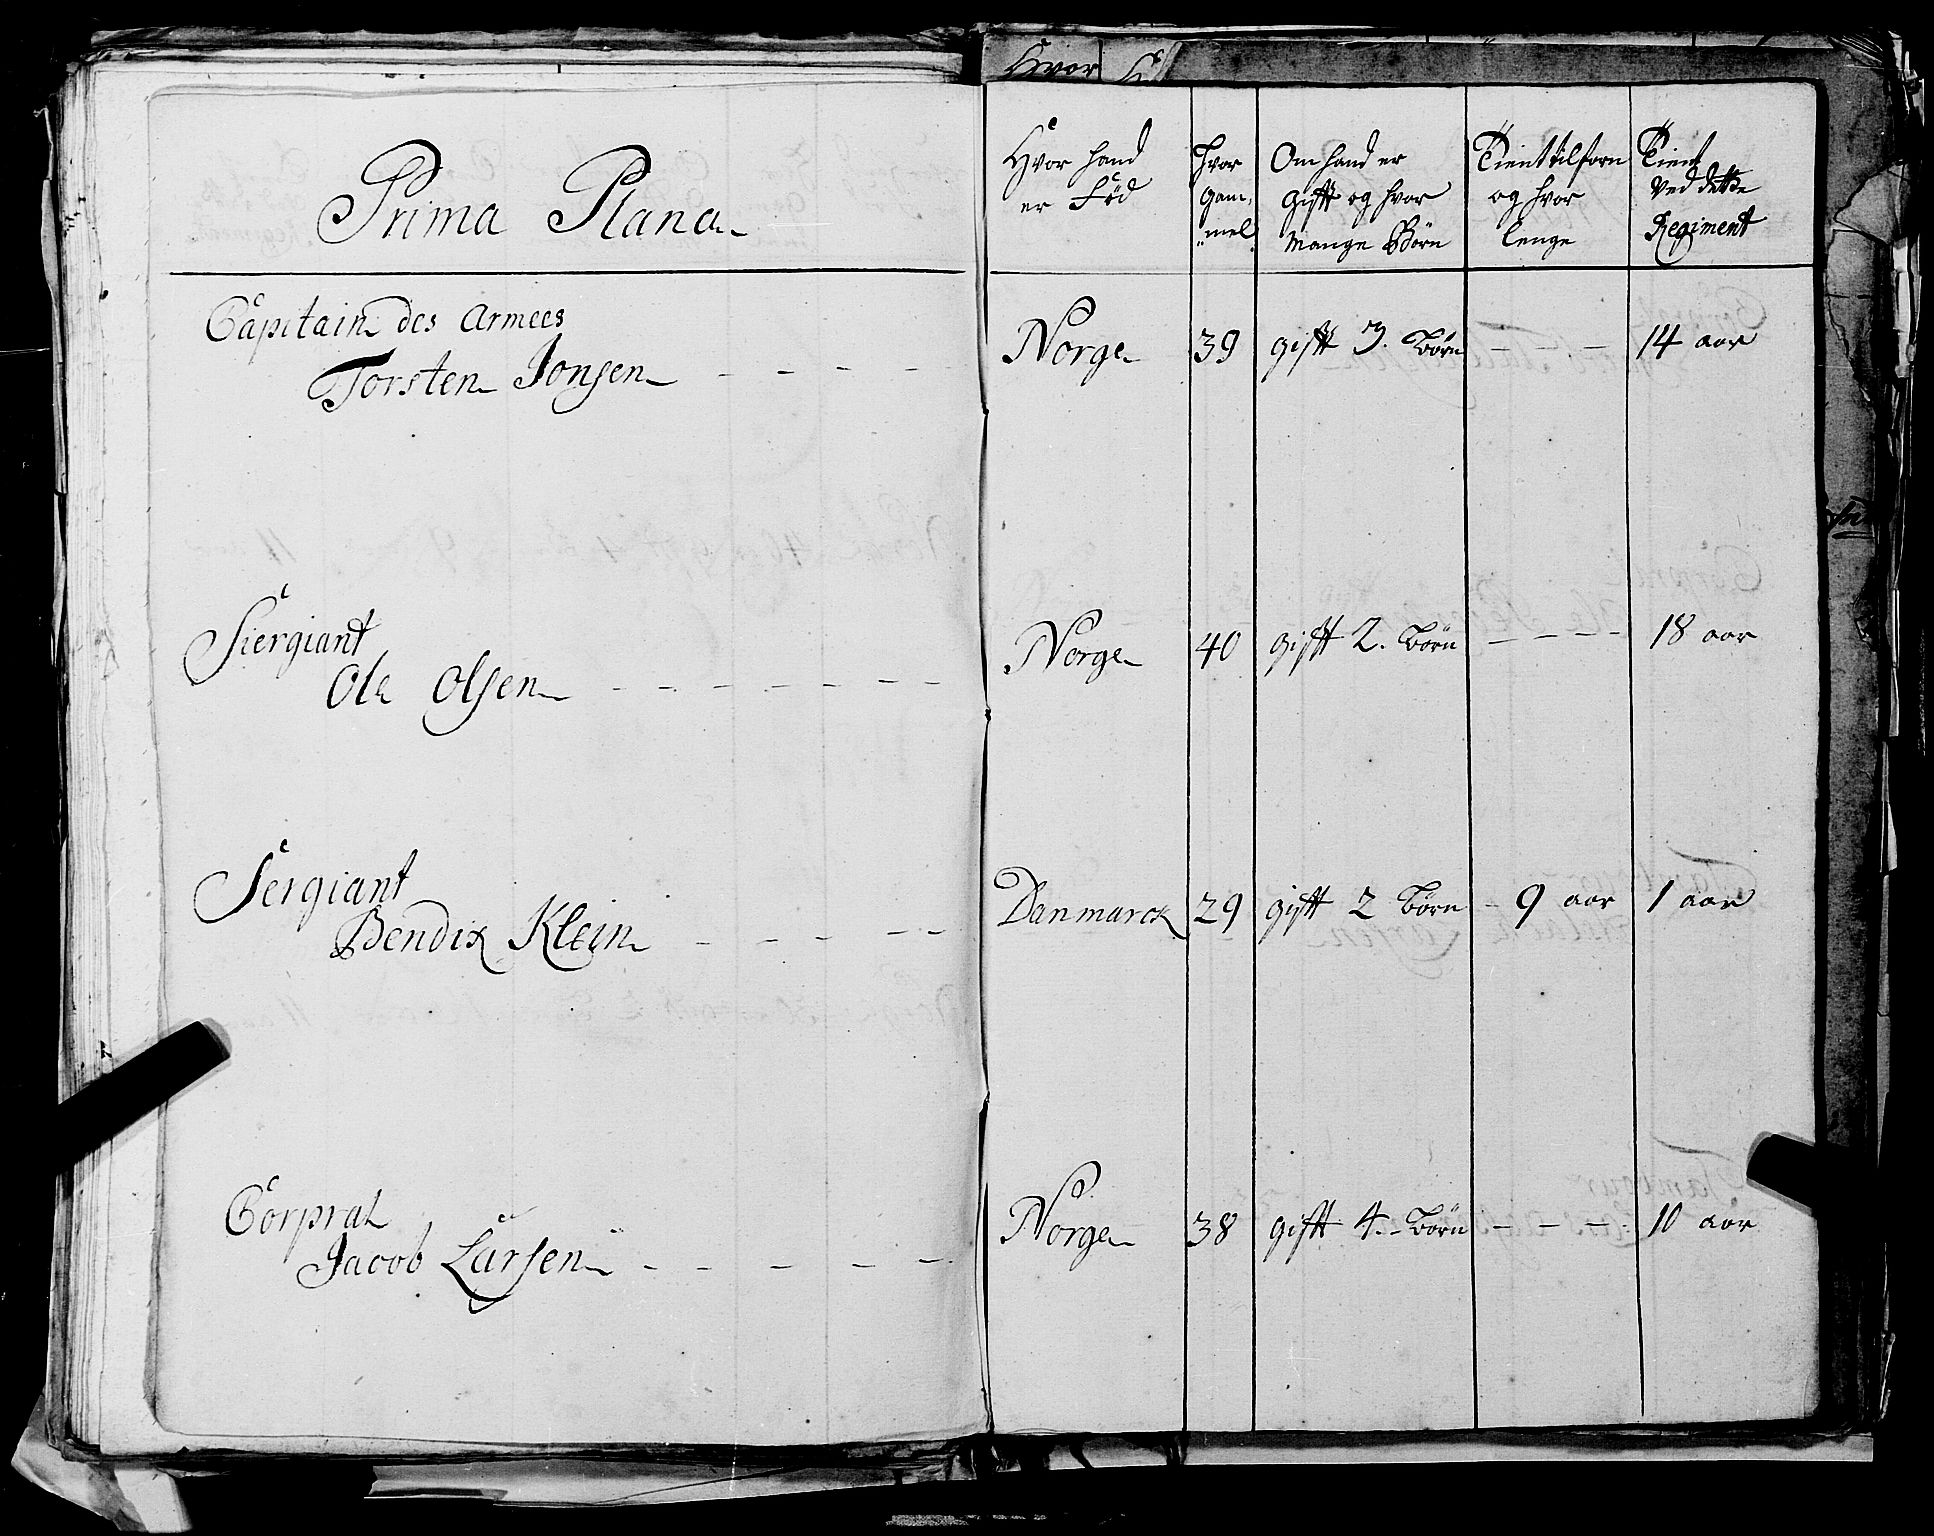 Hvor
Prima Plana
Hvor hand
er Föd
hvor
gam,
mel
Om hand er
gifft og hvor
mange Börn
Tient tilforn
og hvor
lenge
Tient
ved dette
Regiment
Capitain des Armees
Torsten Jonsen - - - - Norge 39 gifft 3. börn - - 14 aar
Siergiant
Ole Olsen - - - - - - - Norge 40 gifft 2. börn - - - - 18 aar
Sergiant
Bendix Klein - - - - - Danmarck 29 gifft 2 börn - 9 aar 1 aar
Corpral
Jacob Larsen - - - - - Norge 38 gifft 4. börn - - - 10 aar